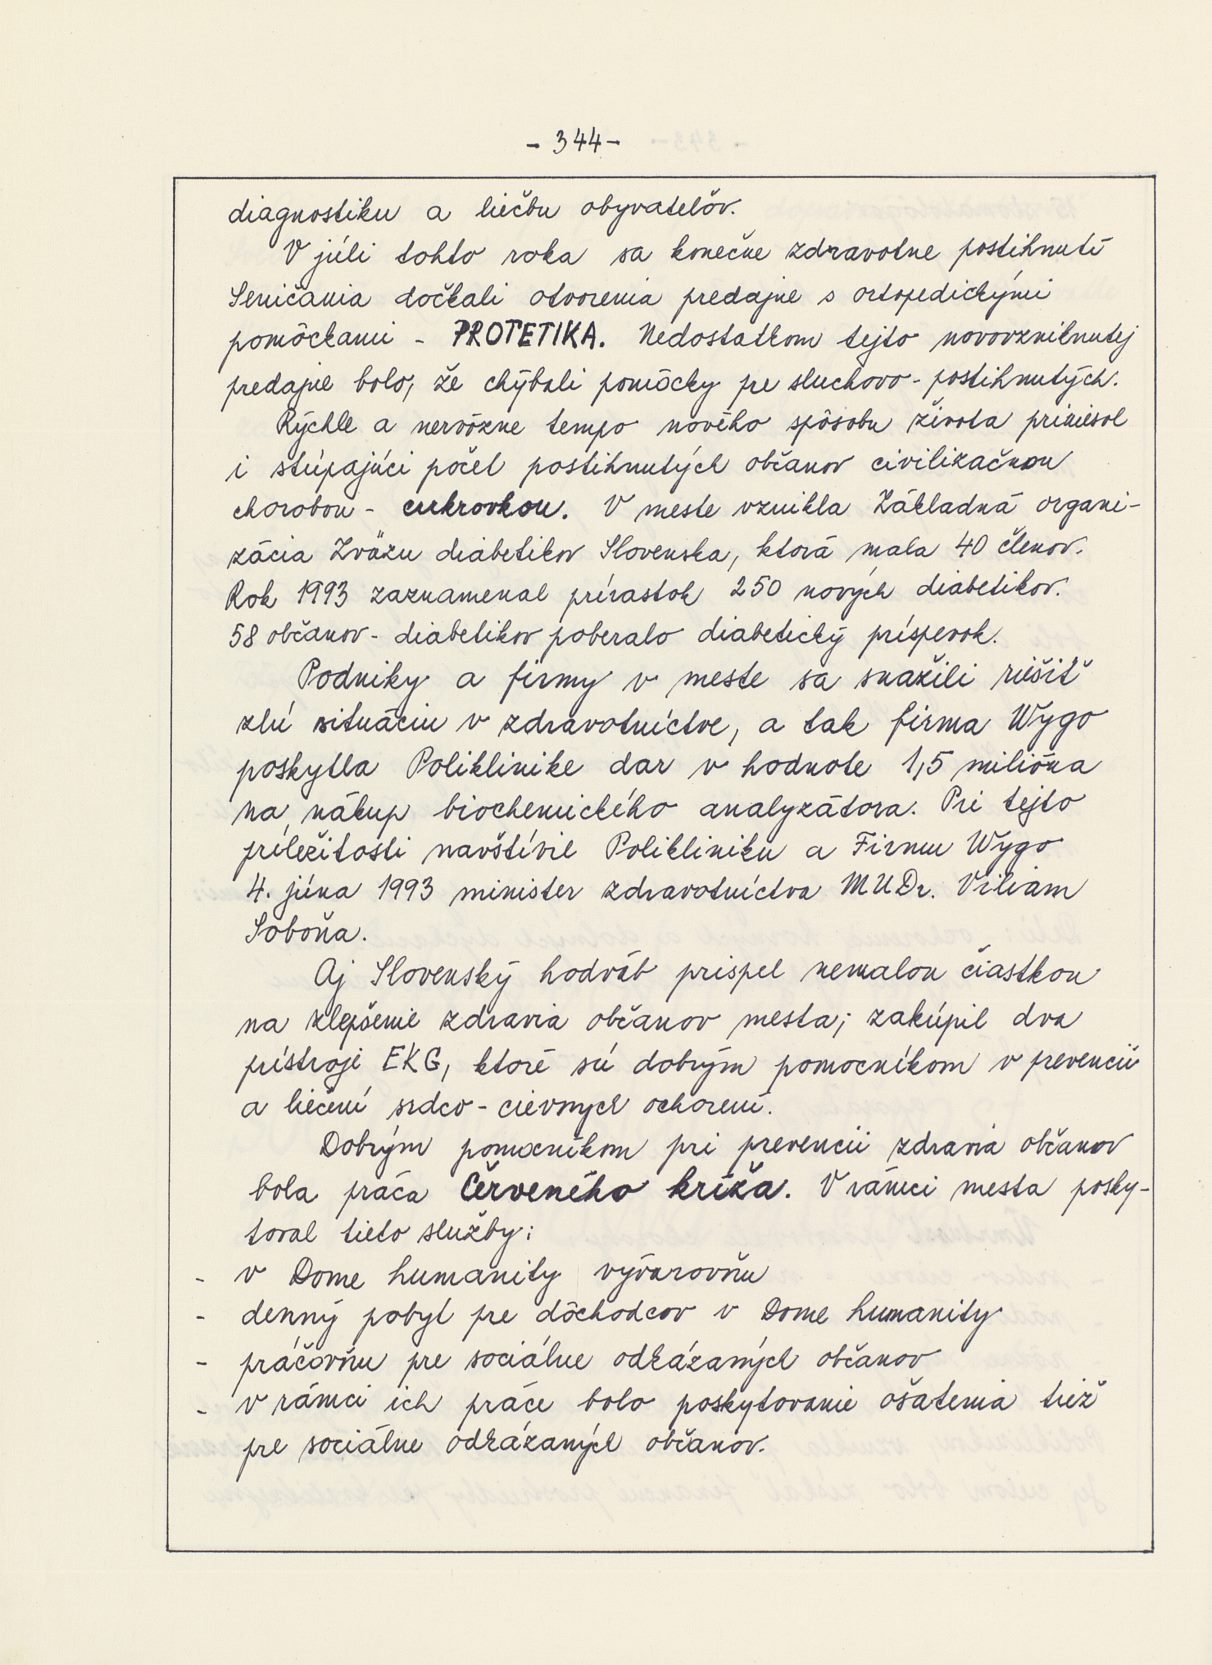 - 344 -
diagnostiku a liečbu obyvateľov.
V júli tohto roka sa konečne zdravotne postihnutí
Seničania dočkali otvorenia predajne s ortopedickými
pomôckami - PROTETIKA. Nedostatkom tejto novovzniknutej
predajne bolo, že chýbali pomôcky pre sluchovo-postihnutých.
Rýchle a nervózne tempo nového spôsobu života priniesol
i stúpajúci počet postihnutých občanov civilizačnou
chorobou - cukrovkou. V meste vznikla Základná organi-
zácia Zväzu diabetikov Slovenska, ktorá mala 40 členov.
Rok 1993 zaznamenal prírastok 250 nových diabetikov.
58 občanov - diabetikov poberalo diabetický príspevok.
Podniky a firmy v meste sa snažili riešiť
zlú situáciu v zdravotníctve, a tak firma Wygo
poskytla Poliklinike dar v hodnote 1,5 milióna
na nákup biochemického analyzátora. Pri tejto
príležitosti navštívil Polikliniku a Firmu Wygo
4. júna 1993 minister zdravotníctva MUDr. Viliam
Soboňa.
Aj Slovenský hodváb prispel nemalou čiastkou
na zlepšenie zdravia občanov mesta; zakúpil dva
prístroje EKG, ktoré sú dobrým pomocníkom v prevencii
a liečení srdco-cievnych ochorení.
Dobrým pomocníkom pri prevencii zdravia občanov
bola práca Červeného kríža. V rámci mesta posky-
toval tieto služby:
- v Dome humanity vývarovňu
- denný pobyt pre dôchodcov v Dome humanity
- práčovňu pre sociálne odkázaných občanov
- v rámci ich práce bolo poskytovanie ošatenia tiež
pre sociálne odkázaných občanov.